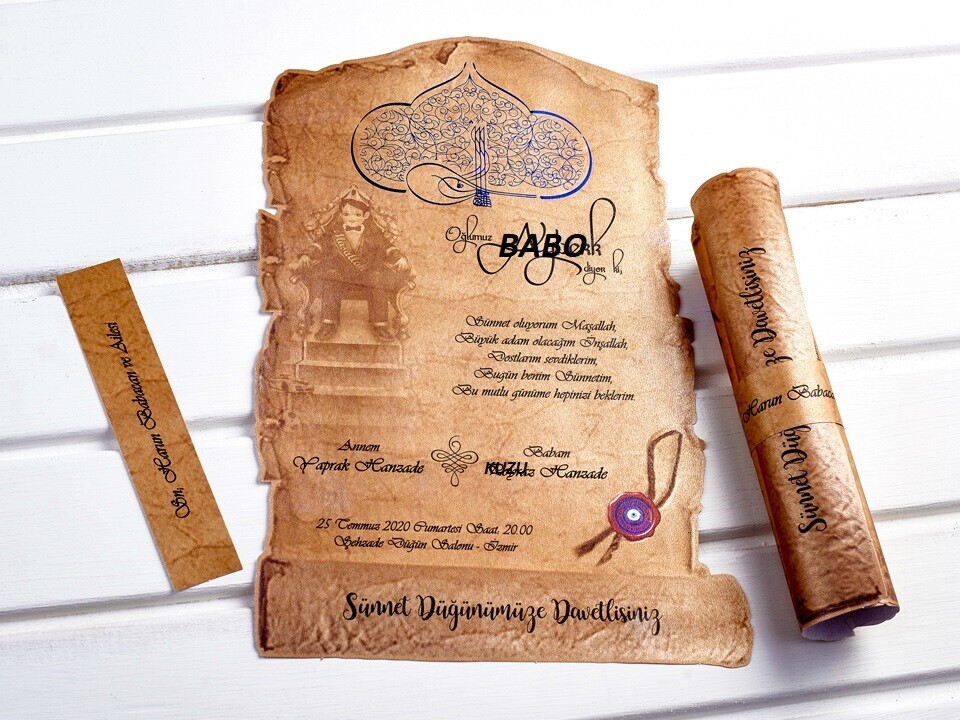 Oğlumuz
BABO
diyor ki,
Maşallah
Sünnet oluyorum Maşallah,
Büyük adam olacağım İnşallah,
Dostlarım sevdiklerim,
Bugün benim Sünnetim,
Bu mutlu günüme hepinizi beklerim.
Annem
Yaprak Hanzade
Babam
KUZU Hanzade
25 Temmuz 2020 Cumartesi Saat. 20.00
Şehzade Düğün Salonu - İzmir
Sünnet Düğünümüze Davetlisiniz
Sn; Harun Babacan ve Ailesi
Sünnet Düğ
Harun Babaca
ze Davetlisiniz